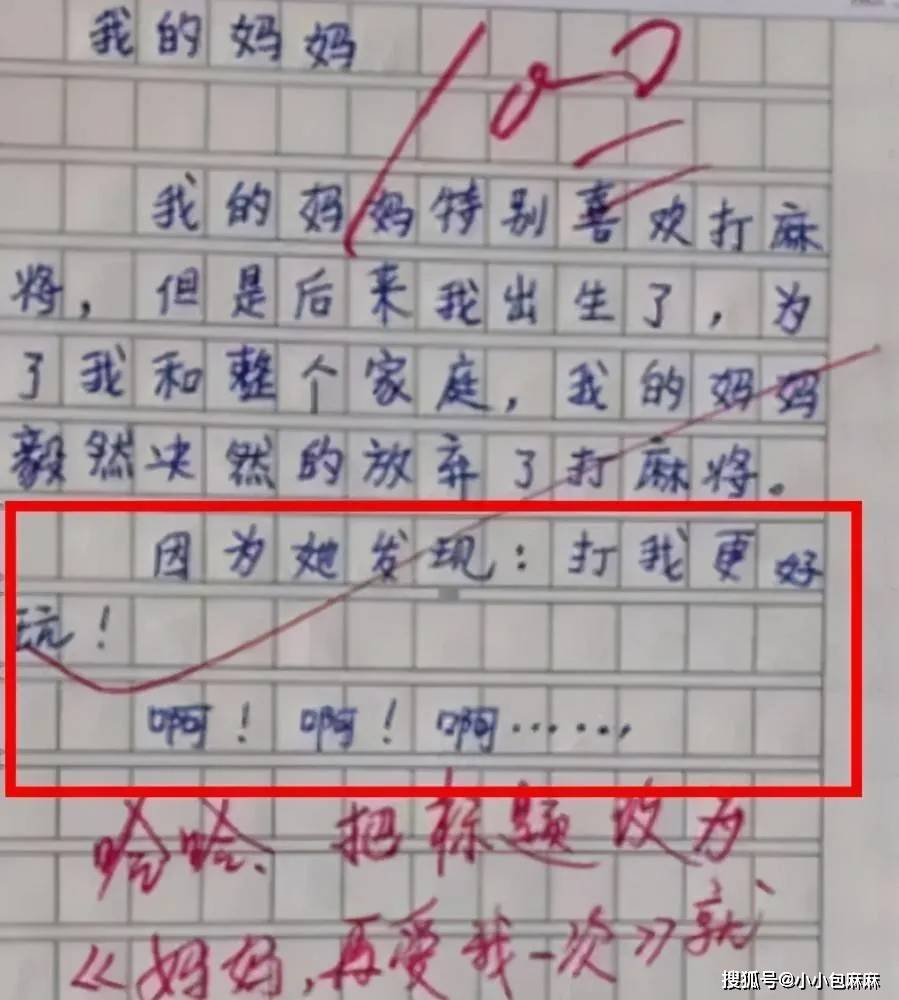 我的妈妈
100
我的妈妈特别喜欢打麻
将，但是后来我出生了，为
了我和整个家庭，我的妈妈
毅然决然的放弃了打麻将。
因为她发现：打我更好
玩！
啊！啊！啊……
哈哈、把标题改为
《妈妈，再爱我一次》就
搜狐号@小小包麻麻